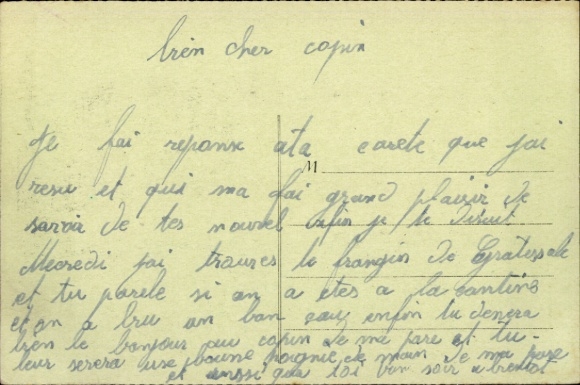 bien cher copin
Je fai reponse ata carete que jai
M
resu et qui ma fai grand plaisir de
savoir de tes nouvel enfin je te dirait
Mecredi jai trouves le frangin de
et tu parele si on a etes a la cantine
et on a bru un ban cou enfin tu denera
bien le bonjour au copin de me pare et tu
leur serera use boune poignie de main de ma pare
et aussi que toi bon soir a bientot